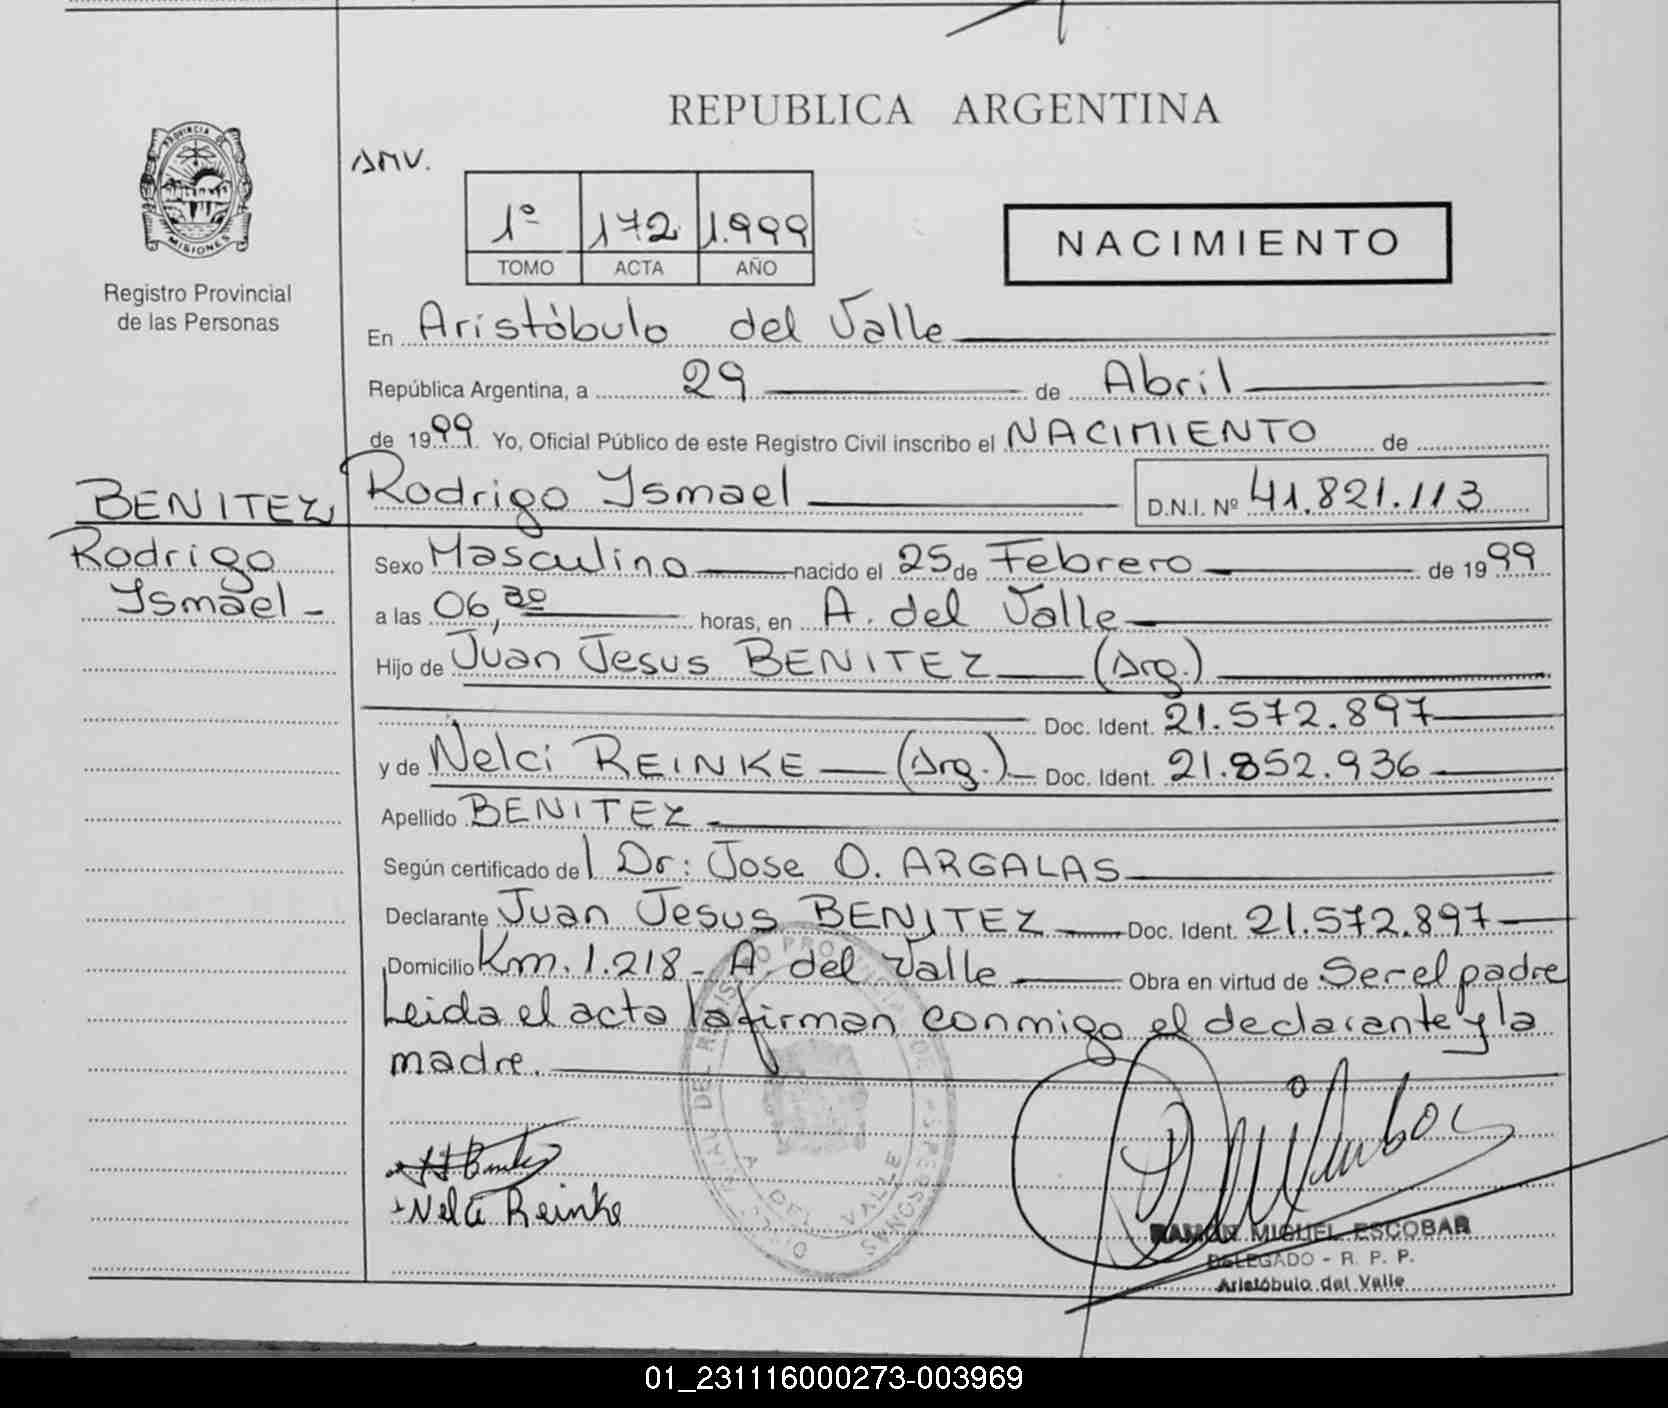 REPUBLICA ARGENTINA
PROVINCIA DE
MISIONES
Registro Provincial
de las Personas
1º 172 1.999
TOMO ACTA AÑO
NACIMIENTO
En Aristóbulo del Valle
República Argentina, a 29 de Abril
de 1999 Yo, Oficial Público de este Registro Civil inscribo el NACIMIENTO de
BENITEZ, Rodrigo Ismael D.N.I. Nº 41.821.113
Rodrigo
Ismael -
Sexo Masculino nacido el 25 de Febrero de 1999
a las 06,30 horas, en A. del Valle
Hijo de Juan Jesus BENITEZ (Arg.)
Doc. Ident. 21.572.897
y de Nelci REINKE (Arg.) Doc. Ident. 21.852.936
Apellido BENITEZ
Según certificado del Dr: Jose O. ARGALAS
Declarante Juan Jesus BENITEZ Doc. Ident. 21.572.897
Domicilio Km. 1.218 - A. del Valle Obra en virtud de Ser el padre
Leida el acta la firman conmigo el declarante y la
madre.
A. DEL VALLE
Reinke
RAMON MIGUEL ESCOBAR
DELEGADO - R. P. P.
Aristóbulo del Valle
01_231116000273-003969